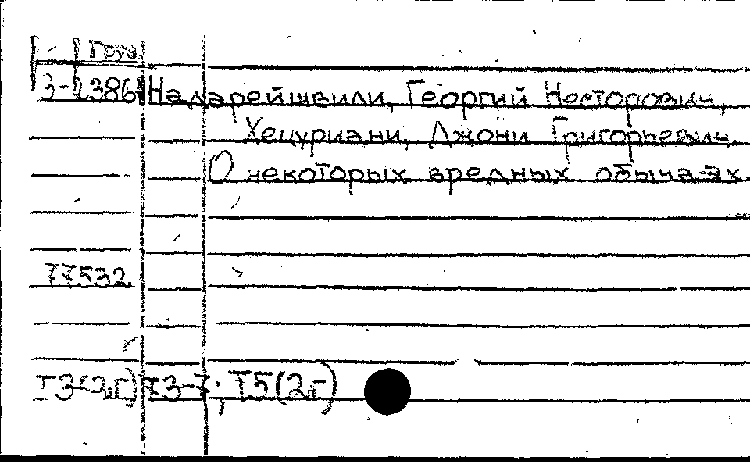 Груз
3-2386 Надарейшвили, Георгий Несторович,
Хецуриани, Джони Григорьевич
О некоторых вредных обычаях
77532
Т3(2г) Т3-7; Т5(2г)